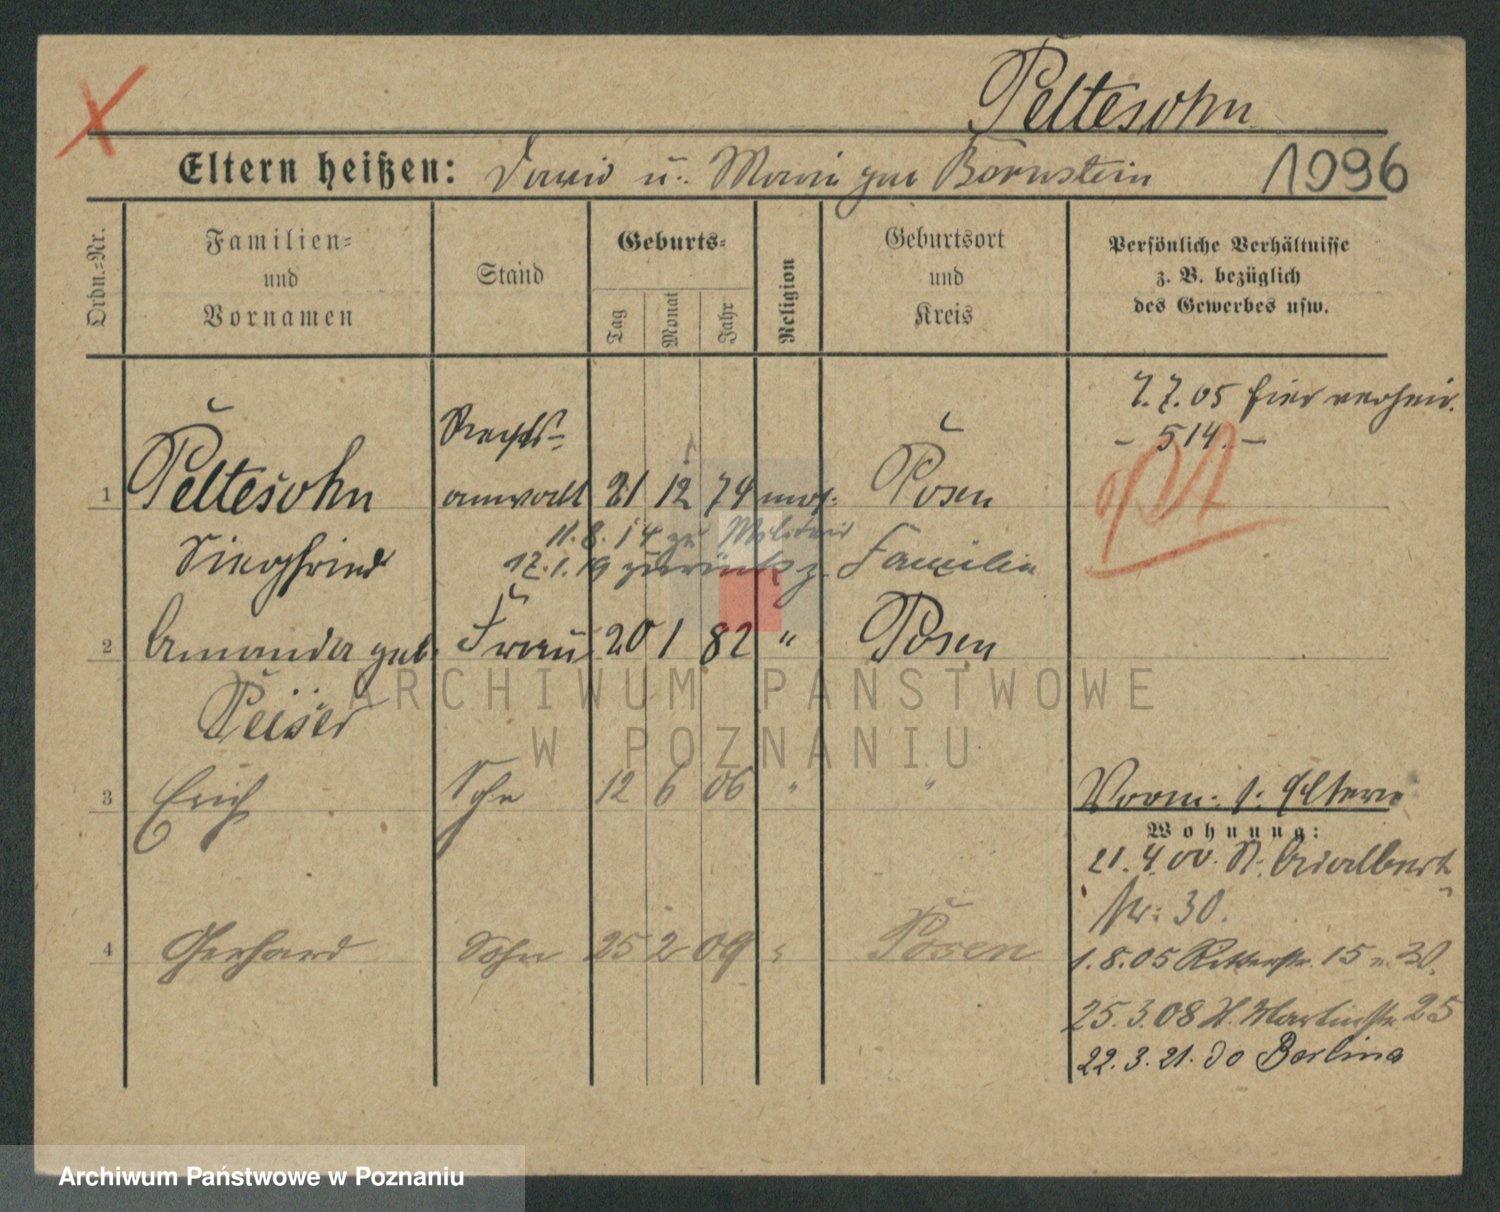 Peltesohn
Eltern heißen: David u. Marie geb Bornstein 1096
Ordn.=Nr.
Familien=
und
Vornamen
Stand
Geburts=
Tag
Monat
Jahr
Religion
Geburtsort
und
Kreis
Persönliche Verhältnisse
z. B. bezüglich
des Gewerbes usw.
7.7.05 hier verheir.
- 514. -
Rechts=
1 Peltesohn anwalt 21 12 74 mos. Posen
Siegfried
11.8.14 zu Militair
17.1.19 zurück z. Familie
2 Amanda geb. Frau 20 1 82 " Posen
Peiser
3 Erich Sohn 12 6 06 " "
4 Gerhard Sohn 25 2 09 " Posen
Vorm. s. Eltern
Wohnung:
21.4.00. St. Adalbert
str: 30.
1.8.05 Ritterstr. 15 n. 30.
25.3.08 St. Martinstr. 25
22.3.21. do Berlina
ARCHIWUM PAŃSTWOWE
W POZNANIU
Archiwum Państwowe w Poznaniu